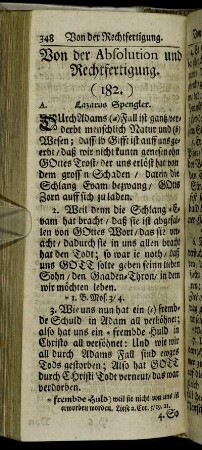 348 Von der Rechtfertigung.
Von der Absolution und
Rechtfertigung.
(182.)
A. Lazarus Spengler.
DUrch Adams (a) Fall ist gantz ver-
derbt menschlich Natur und (b)
Wesen; dasselb Gifft ist auff uns ge-
erbt, daß wir nicht kunnt genesen ohn
GOttes Trost, der uns erlöst hat von
dem grossen Schaden, darein die
Schlang Evam bezwang, GOtts
Zorn auff sich zu laden.
2. Weil denn die Schlang * E-
vam hat bracht, daß sie ist abgefal-
len von GOttes Wort, das sie ver-
acht, dadurch sie in uns allen bracht
hat den Todt; so war je noth, daß
uns GOTT solte geben seinen lieben
Sohn, den Gnaden-Thron, in dem
wir möchten leben.
* 1. B. Mos. 3/ 4.
3. Wie uns nun hat ein (c) fremb-
de Schuld in Adam all verhöhnet;
also hat uns ein * frembde Huld in
Christo all versöhnet: Und wie wir
all durch Adams Fall sind ewges
Tods gestorben; Also hat GOTT
durch CHristi Todt verneut, das war
verdorben.
* frembde Huld) weil sie nicht von uns ist
erworben worden. 2. Cor. 5/ 19. 21.
4. So